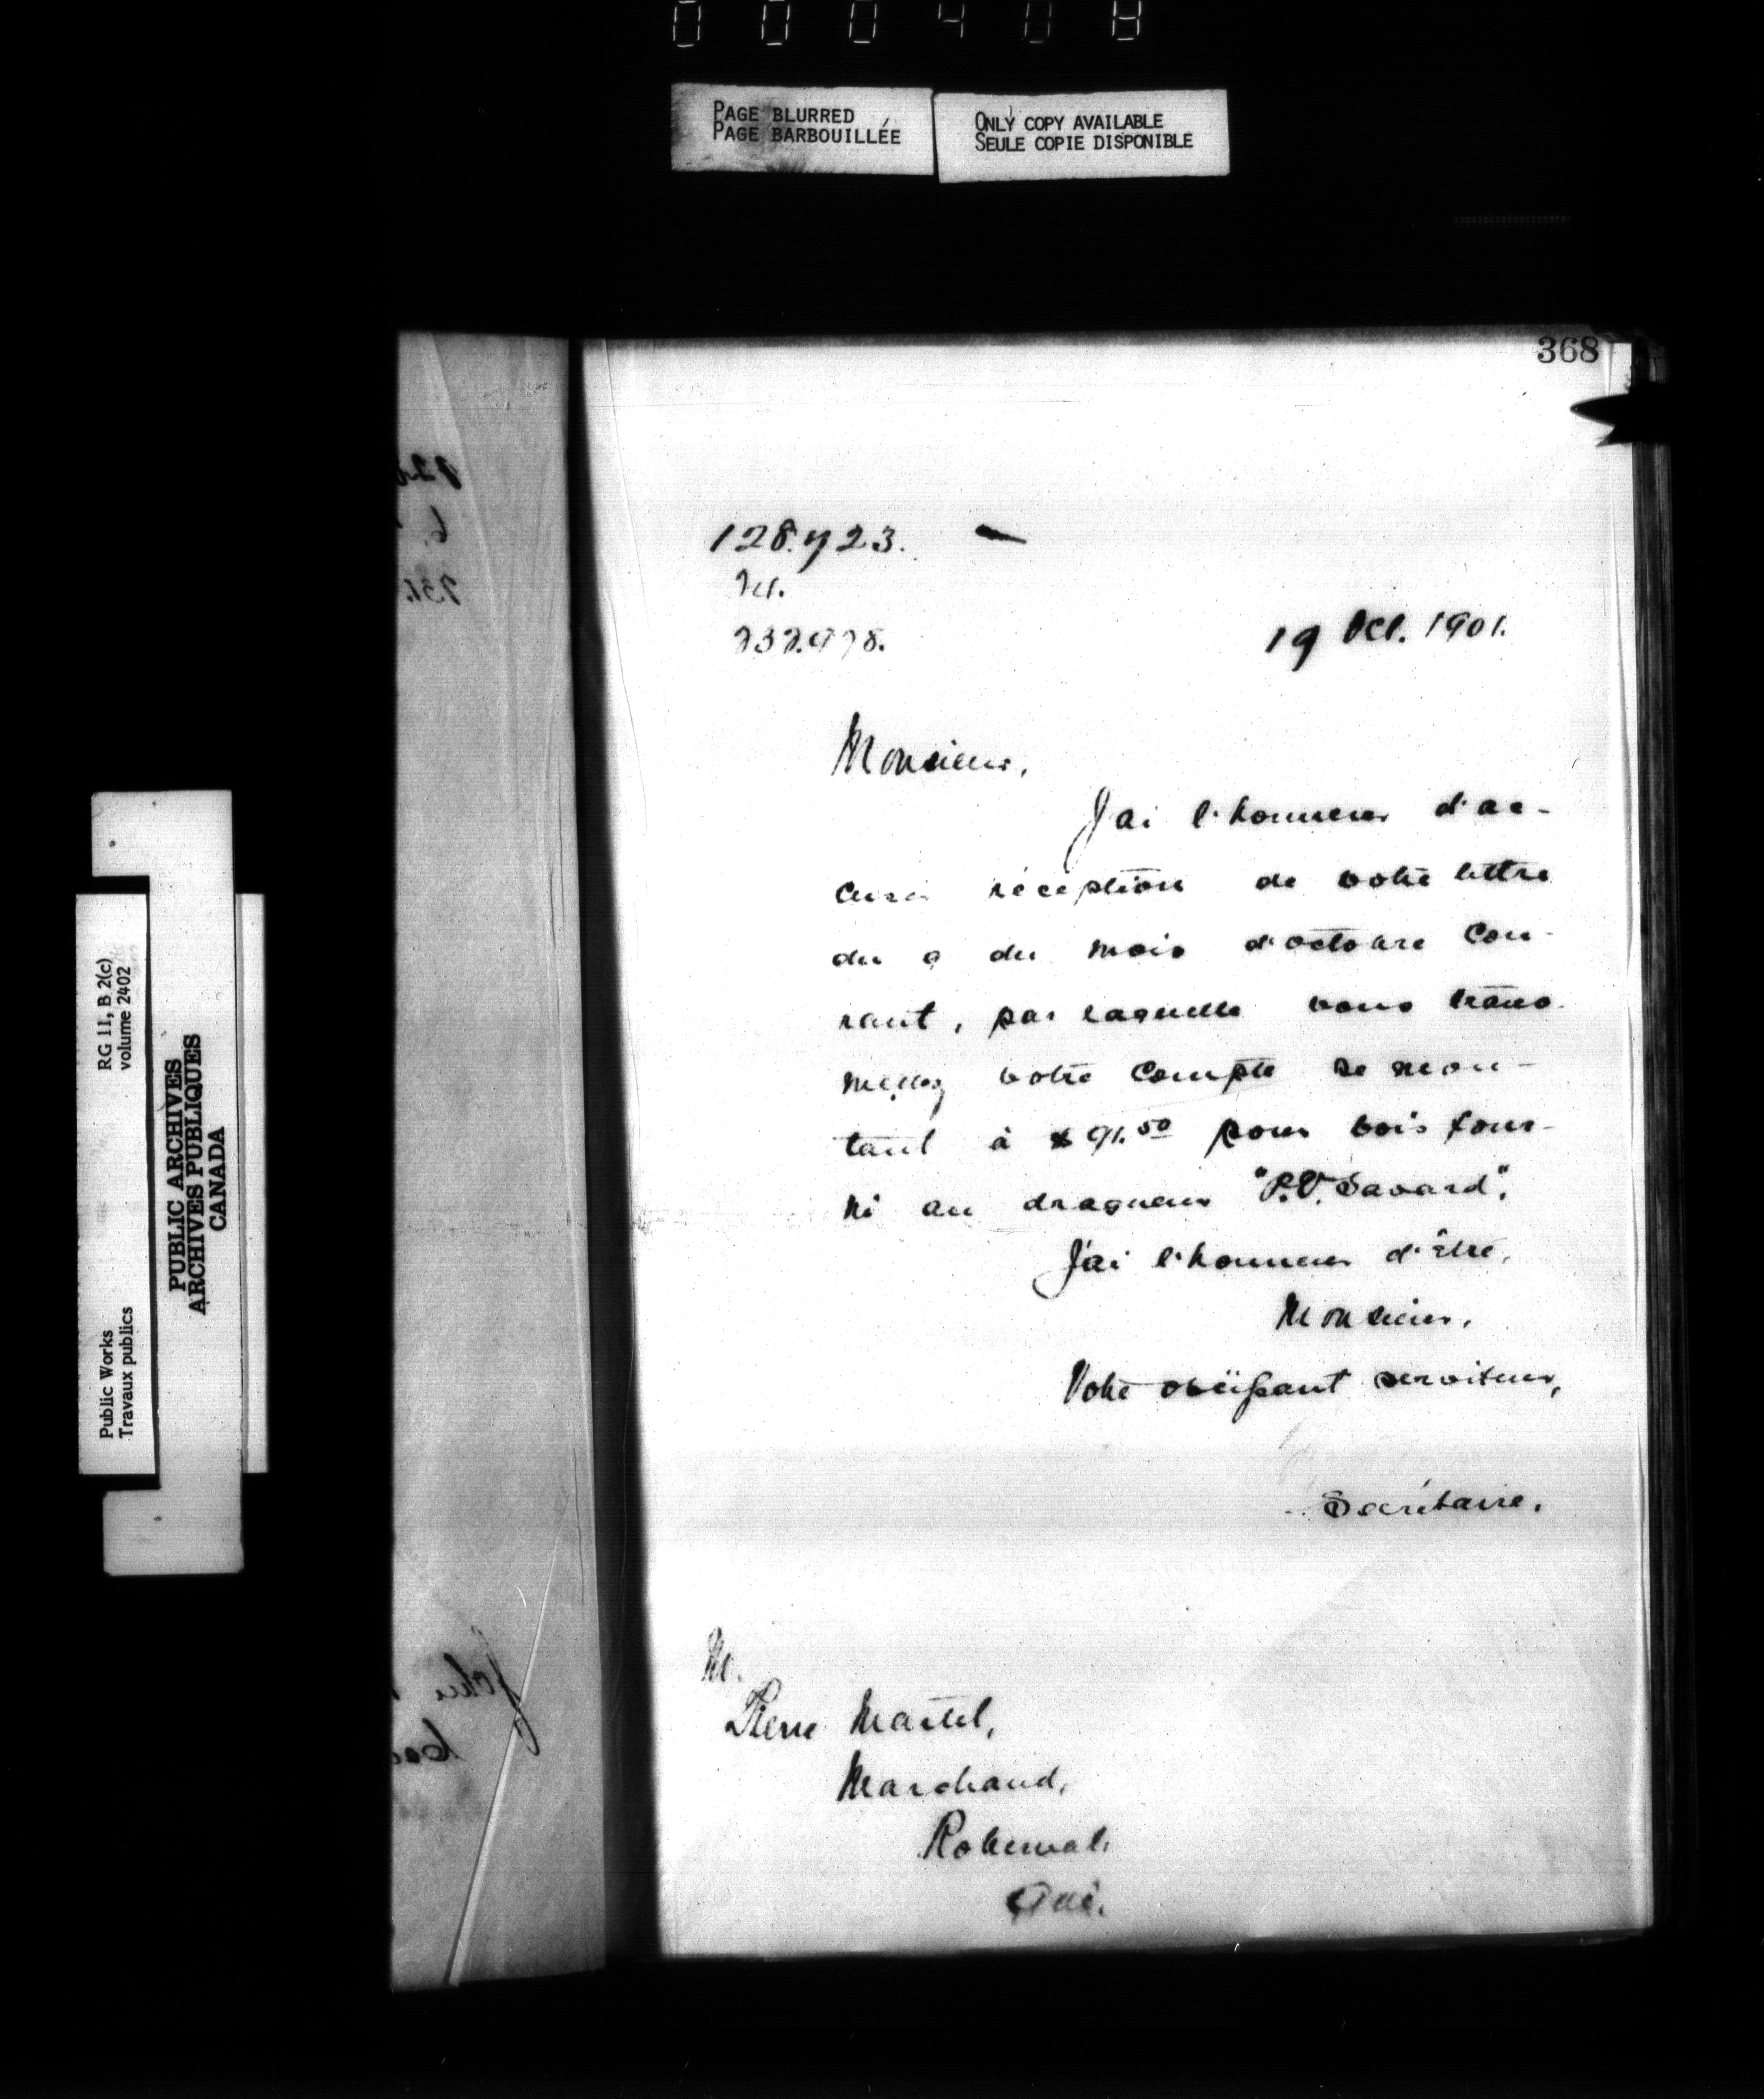 000408
PAGE BLURRED
PAGE BARBOUILLÉE
ONLY COPY AVAILABLE
SEULE COPIE DISPONIBLE
368
128.723.
Ref.
232.978.
19 Oct. 1901.
Monsieur,
J'ai l'honneur d'ac-
cuser réception de votre lettre
du 9 du mois d'octobre cou-
rant, par laquelle vous trans-
mettez votre compte se mon-
tant à $91.50 pour bois four-
ni au dragueur "P.V. Savard".
J'ai l'honneur d'être,
Monsieur,
Votre obéissant serviteur,
Secrétaire.
M.
Pierre Martel,
Marchand,
Roberval,
Qué.
RG 11, B 2(c)
volume 2402
Public Works
Travaux publics
PUBLIC ARCHIVES
ARCHIVES PUBLIQUES
CANADA